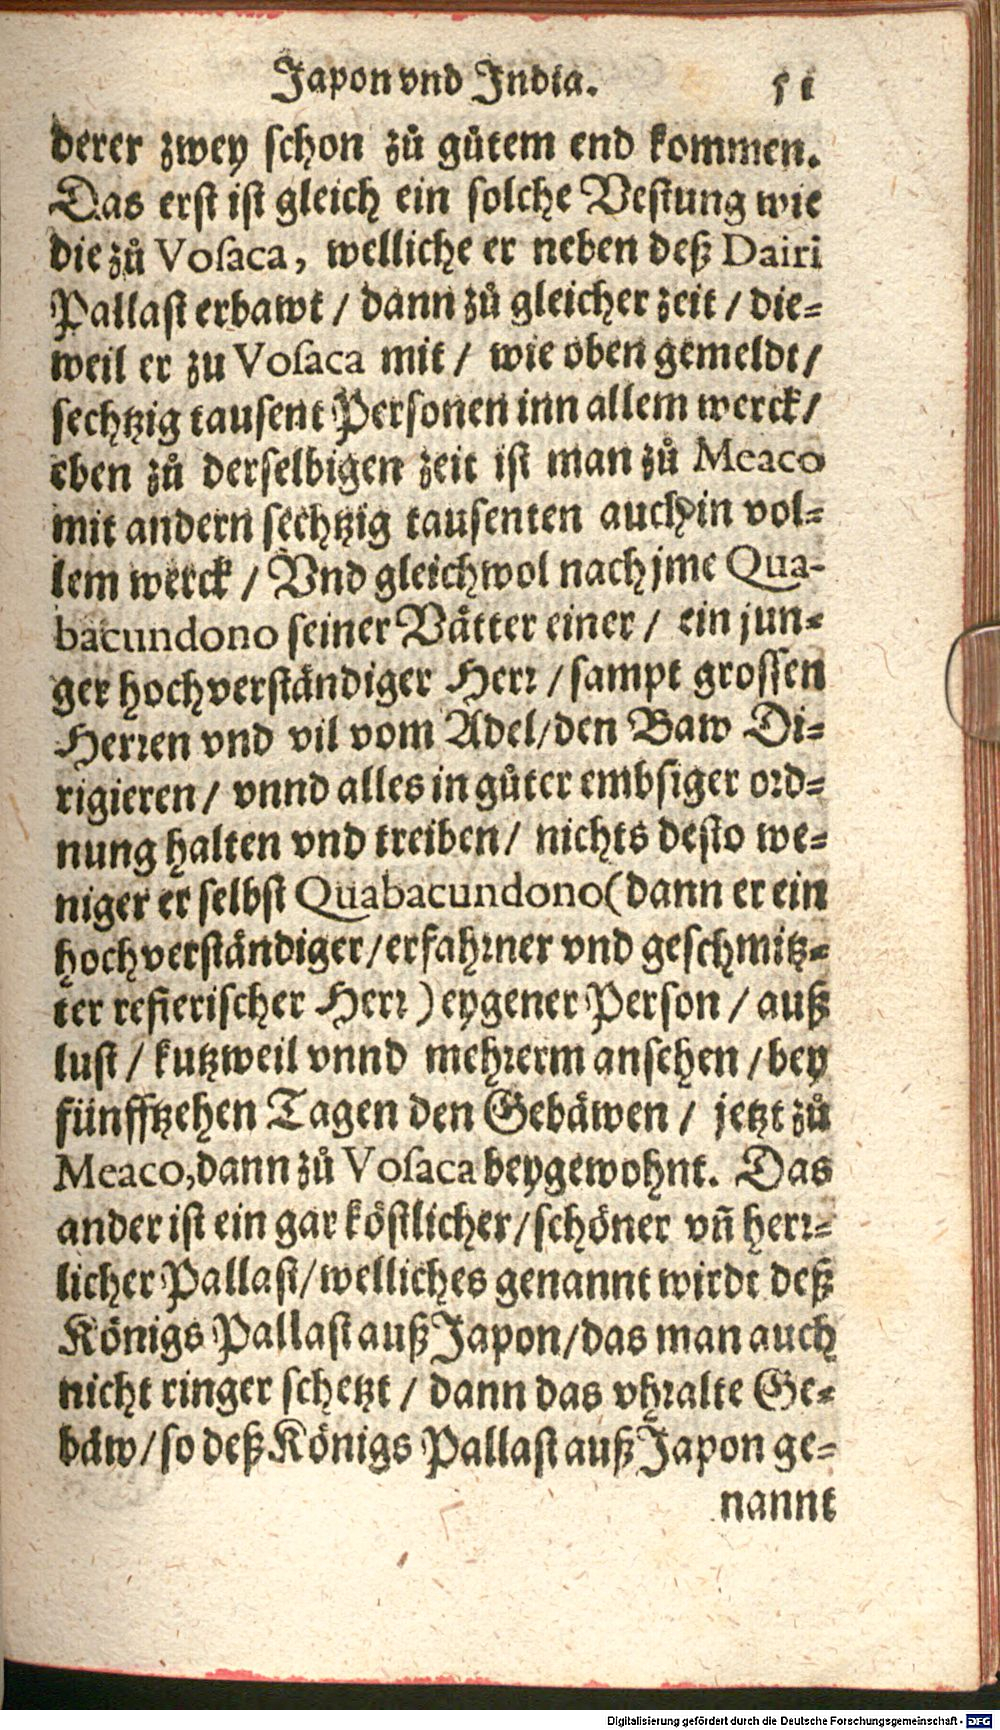 Japon vnd India. 51
derer zwey schon zů gůtem end kommen.
Das erst ist gleich ein solche Vestung wie
die zů Vosaca, welliche er neben deß Dairi
Pallast erbawt / dann zů gleicher zeit / die=
weil er zu Vosaca mit / wie oben gemeldt /
sechtzig tausent Personen inn allem werck /
eben zů derselbigen zeit ist man zů Meaco
mit andern sechtzig tausenten auch in vol=
lem werck / Vnd gleichwol nach jme Qua-
bacundono seiner Vätter einer / ein jun=
ger hochverständiger Herr / sampt grossen
Herren vnd vil vom Adel / den Baw Di=
rigieren / vnnd alles in gůter embsiger ord=
nung halten vnd treiben / nichts desto we=
niger er selbst Quabacundono (dann er ein
hochverständiger / erfahrner vnd geschmitz=
ter refierischer Herr) eygener Person / auß
lust / kutzweil vnnd mehrerm ansehen / bey
fünfftzehen Tagen den Gebäwen / jetzt zů
Meaco, dann zů Vosaca beygewohnt. Das
ander ist ein gar köstlicher / schöner vñ herr=
licher Pallast / welliches genannt wirdt deß
Königs Pallast auß Japon / das man auch
nicht ringer schetzt / dann das vhralte Ge=
bäw / so deß Königs Pallast auß Japon ge=
nannt
Digitalisierung gefördert durch die Deutsche Forschungsgemeinschaft - DFG